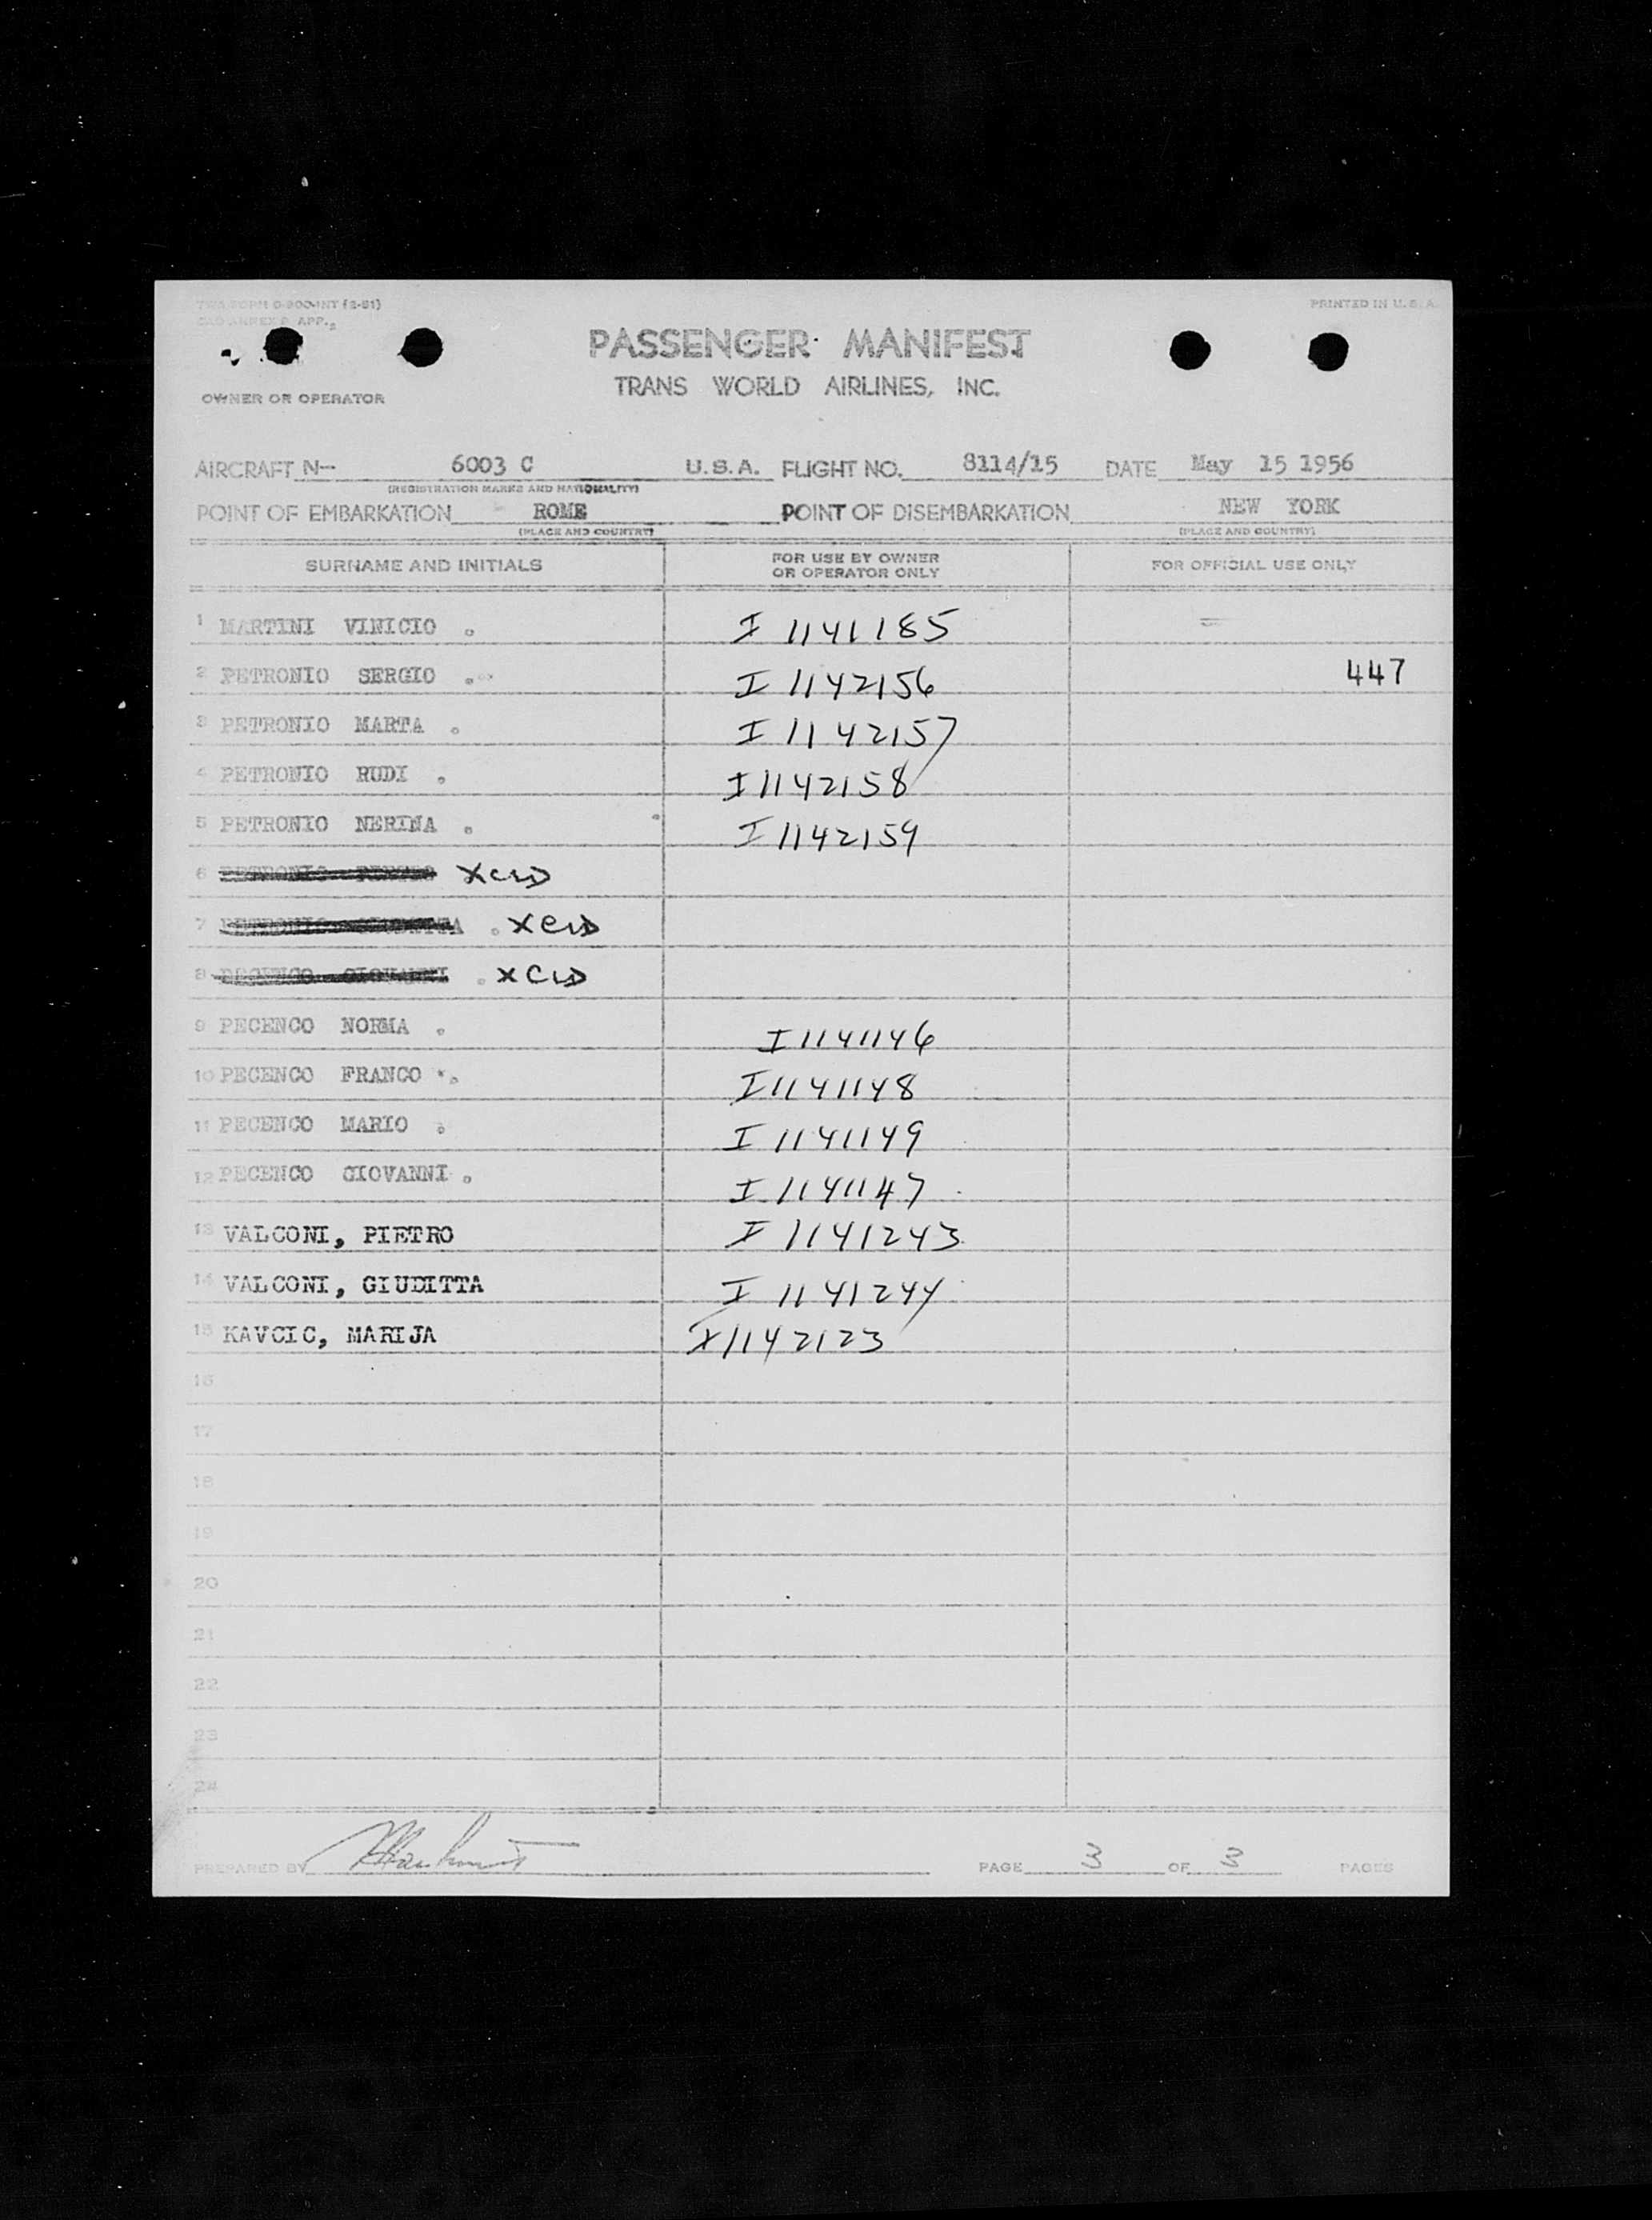 TWA FORM 0-300-INT (2-51)
PRINTED IN U.S.A.
APP.
PASSENGER MANIFEST
TRANS WORLD AIRLINES, INC.
OWNER OR OPERATOR
AIRCRAFT N-- 6003 C U.S.A. FLIGHT NO. 8114/15 DATE May 15 1956
(REGISTRATION MARKS AND NATIONALITY)
POINT OF EMBARKATION ROME POINT OF DISEMBARKATION NEW YORK
(PLACE AND COUNTRY) (PLACE AND COUNTRY)
SURNAME AND INITIALS FOR USE BY OWNER OR OPERATOR ONLY FOR OFFICIAL USE ONLY
1 MARTINI VINICIO . I 1141185
2 PETRONIO SERGIO . I 1142156 447
3 PETRONIO MARTA . I 1142157
4 PETRONIO RUDI . I 1142158
5 PETRONIO NERINA . I 1142159
6 PETRONIO XCLD
7 PETRONIO . XCLD
8 PECENCO GIOVANNI . XCLD
9 PECENCO NORMA . I 1141146
10 PECENCO FRANCO . I 1141148
11 PECENCO MARIO . I 1141149
12 PECENCO GIOVANNI . I 1141147
13 VALCONI, PIETRO I 1141243
14 VALCONI, GIUDITTA I 1141244
15 KAVCIC, MARIJA I 1142123
16
17
18
19
20
21
22
23
24
PREPARED BY PAGE 3 OF 3 PAGES